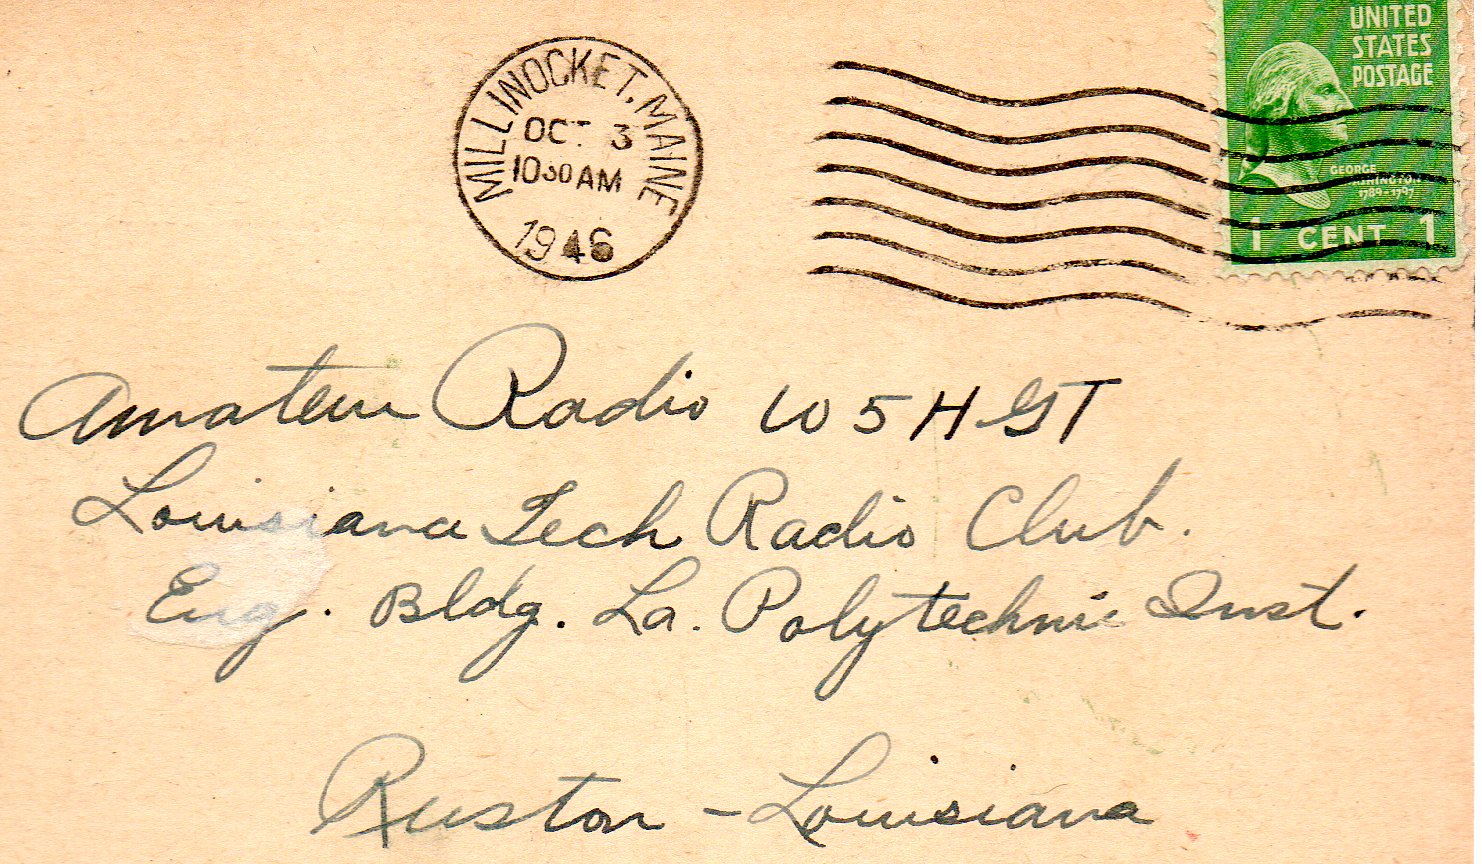 MILLINOCKET, MAINE
OCT 3
10 30 AM
1946
UNITED
STATES
POSTAGE
GEORGE
WASHINGTON
1789-1797
1 CENT 1
Amateur Radio W5HGT
Louisiana Tech Radio Club.
Eng. Bldg. La. Polytechnic Inst.
Ruston - Louisiana